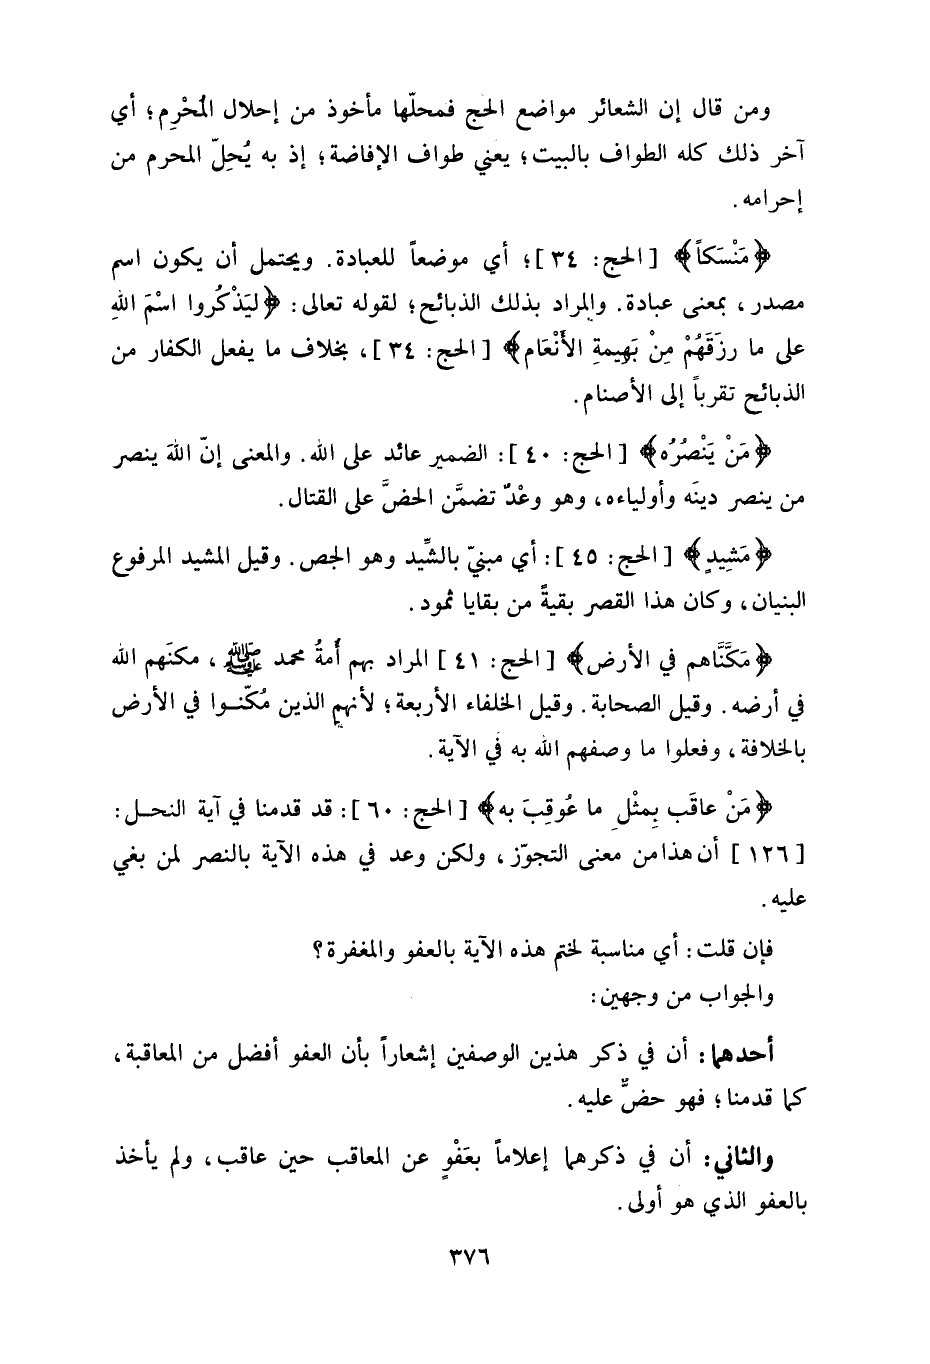 ومن قال إن الشعائر مواضع الحج فمحلّها مأخوذ من إحلال المُحْرِم؛ أي
آخر ذلك كله الطواف بالبيت؛ يعني طواف الإفاضة؛ إذ به يُحِلّ المحرم من
إحرامه.
﴿مَنْسَكاً﴾ [الحج: ٣٤]؛ أي موضعاً للعبادة. ويحتمل أن يكون اسم
مصدر، بمعنى عبادة. والمراد بذلك الذبائح؛ لقوله تعالى: ﴿ليَذْكُروا اسْمَ اللهِ
على ما رزَقَهُمْ مِنْ بَهِيمةِ الأَنْعَام﴾ [الحج: ٣٤]، بخلاف ما يفعل الكفار من
الذبائح تقرباً إلى الأصنام.
﴿مَنْ يَنْصُرُه﴾ [الحج: ٤٠]: الضمير عائد على الله. والمعنى إنّ اللهَ ينصر
من ينصر دينَه وأولياءه، وهو وعْدٌ تضمَّن الحضَّ على القتال.
﴿مَشِيدٍ﴾ [الحج: ٤٥]: أي مبنيّ بالشِّيد وهو الجص. وقيل المشيد المرفوع
البنيان، وكان هذا القصر بقيةً من بقايا ثمود.
﴿مَكَّنَّاهم في الأرض﴾ [الحج: ٤١] المراد بهم أُمةُ محمد ﷺ، مكنَهم الله
في أرضه. وقيل الصحابة. وقيل الخلفاء الأربعة؛ لأنهم الذين مُكّنوا في الأرض
بالخلافة، وفعلوا ما وصفهم الله به في الآية.
﴿مَنْ عاقَب بِمثْلِ ما عُوقِبَ به﴾ [الحج: ٦٠]: قد قدمنا في آية النحل:
[١٢٦] أن هذا من معنى التجوّز، ولكن وعد في هذه الآية بالنصر لمن بغي
عليه.
فإن قلت: أي مناسبة لختم هذه الآية بالعفو والمغفرة؟
والجواب من وجهين:
أحدهما: أن في ذكر هذين الوصفين إشعاراً بأن العفو أفضل من المعاقبة،
كما قدمنا؛ فهو حضٌّ عليه.
والثاني: أن في ذكرهما إعلاماً بعَفْوٍ عن المعاقب حين عاقب، ولم يأخذ
بالعفو الذي هو أولى.
٣٧٦